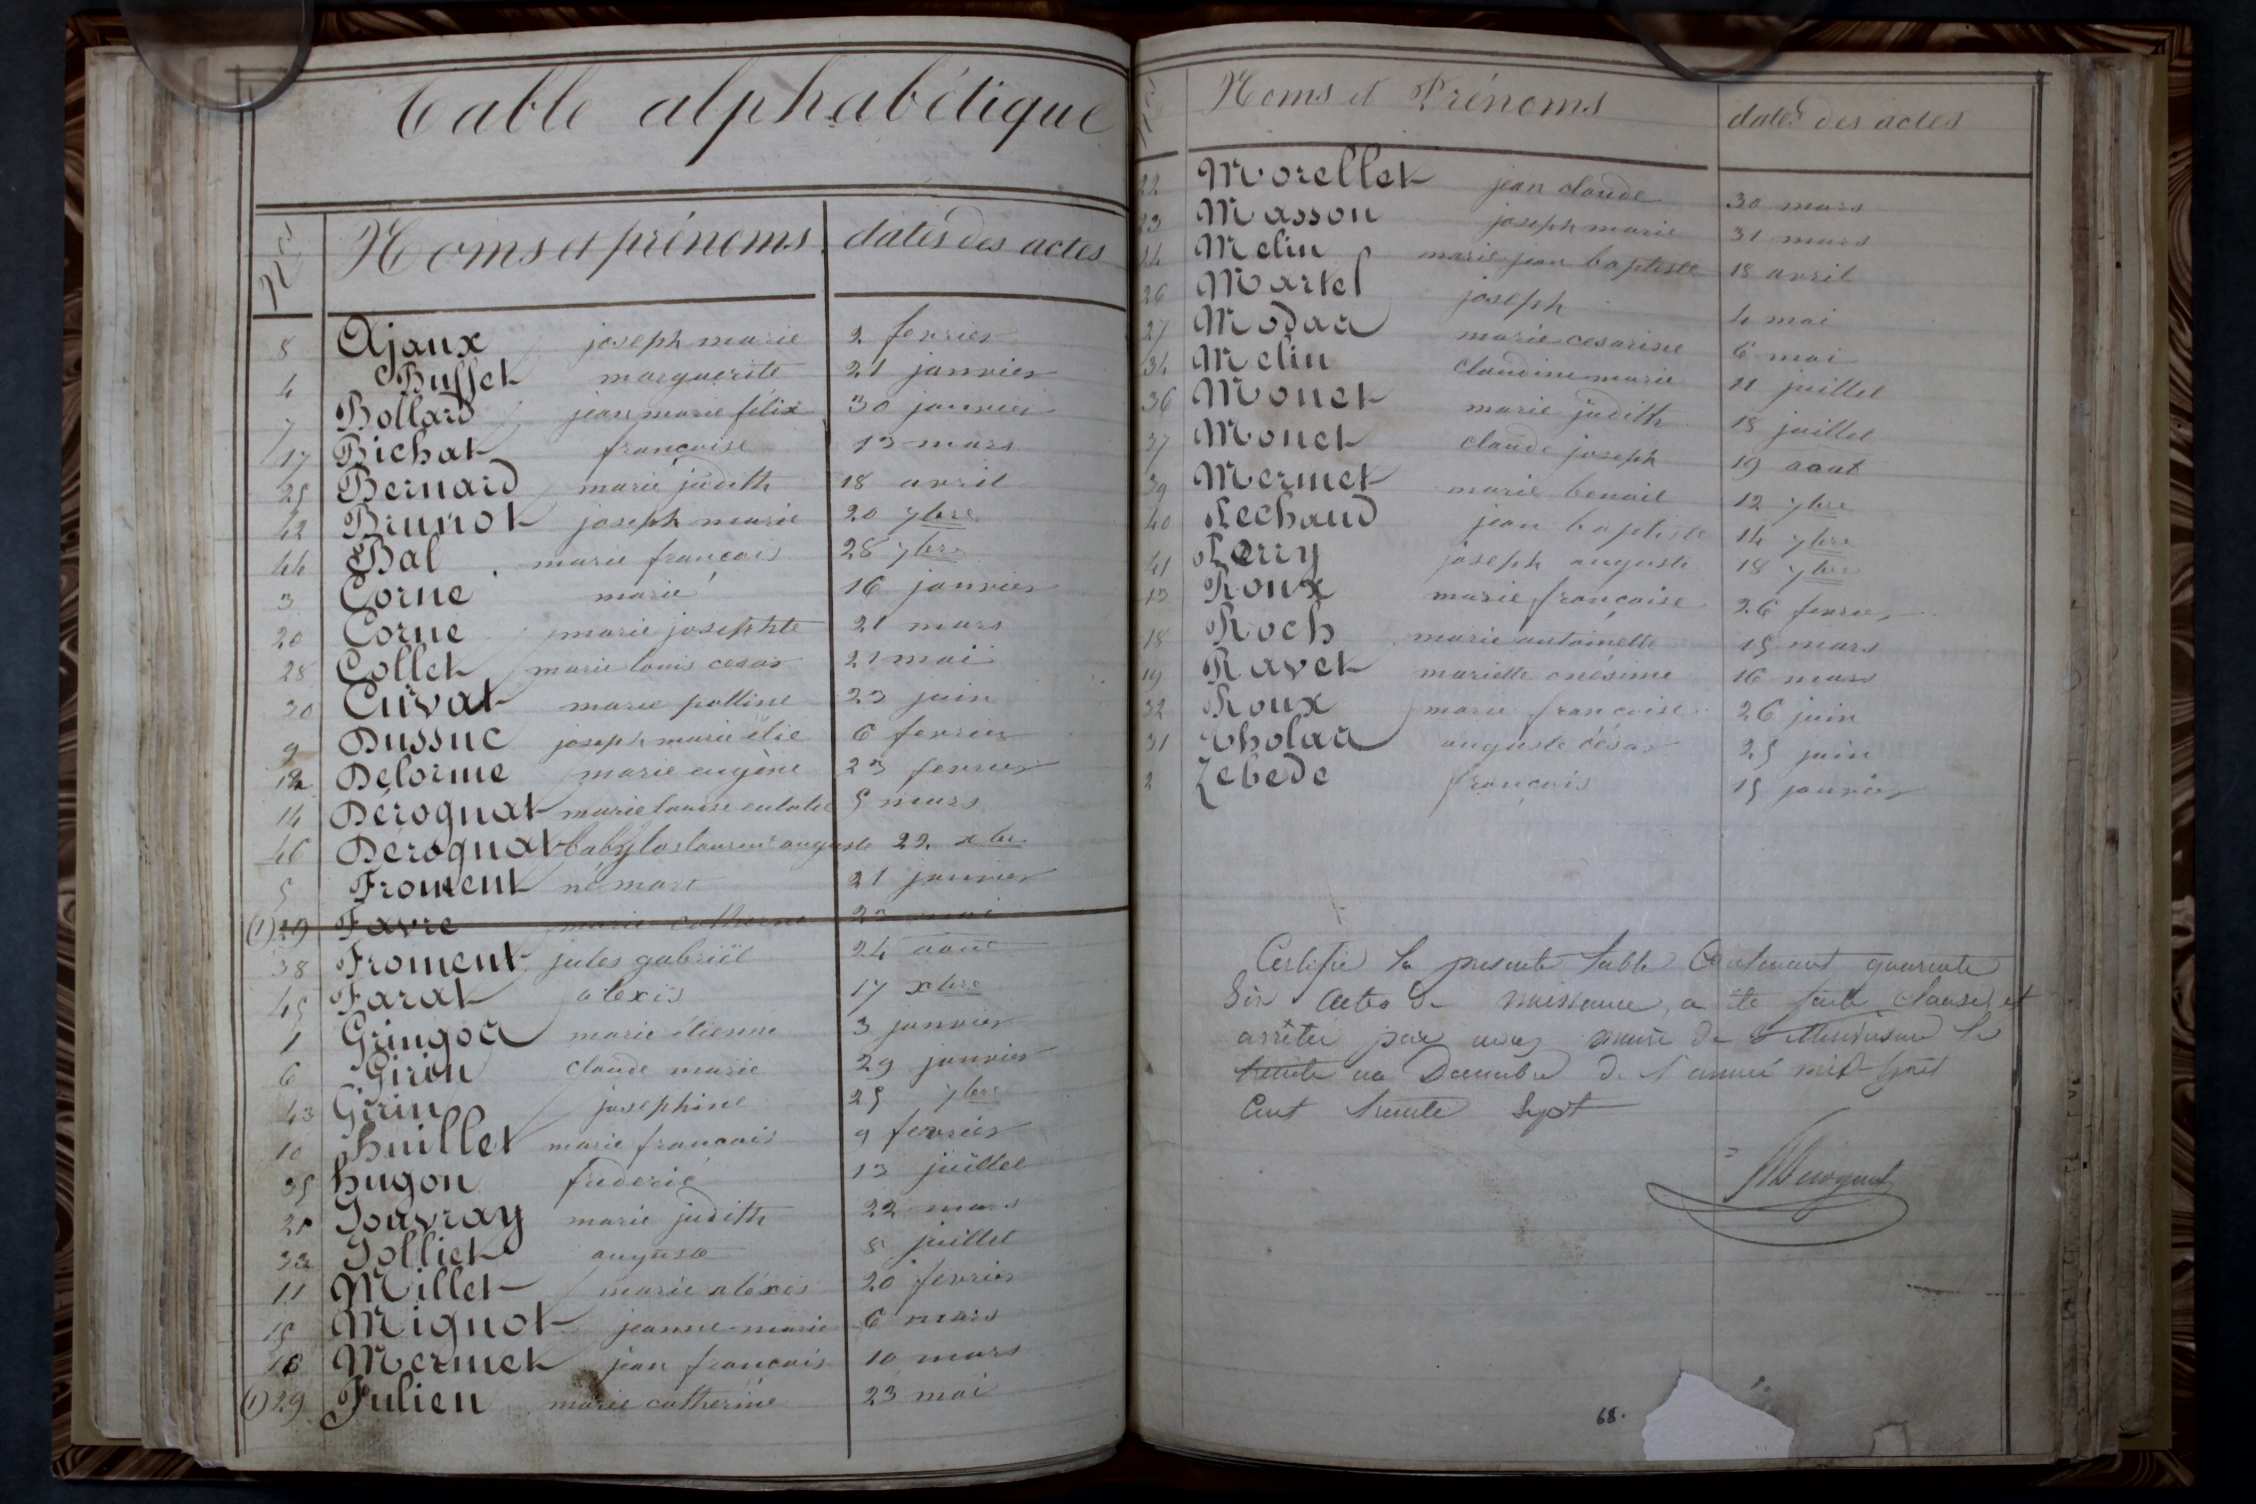 Table alphabétique
Nos Noms et prénoms dates des actes
8 Ajaux joseph marie 2 fevrier
4 Buffet marguerite 21 janvier
7 Bollard jean marie felix 30 janvier
17 Bichat francoise 13 mars
25 Bernard marie judith 18 avril
42 Brunot joseph marie 20 7bre
44 Bal marie francois 28 7bre
3 Corne marie 16 janvier
20 Corne marie josephte 21 mars
28 Collet marie louis cesar 21 mai
30 Curvat marie polline 23 juin
9 Dussuc joseph marie élie 6 fevrier
12 Delorme marie eugène 23 fevrier
14 Dérognat marie louise eulalie 5 mars
46 Dérognat babylas laurent auguste 22 xbre
5 Froment né mort 21 janvier
(1) 29 Favre marie catherine 23 mai
38 Froment jules gabriël 24 aout
45 Farat alexis 17 xbre
1 Gringoz marie étienne 3 janvier
6 Giron claude marie 29 janvier
43 Girin josephine 25 7bre
10 huillet marie francois 9 fevrier
35 hugon frederic 13 juillet
21 Jouvray marie judith 22 mars
33 Jolliet auguste 5 juillet
11 Millet marie aléxis 20 fevrier
15 Mignot jeanne marie 6 mars
16 Mermet jean francois 10 mars
(1) 29 Julien marie catherine 23 mai
Nos Noms et Prénoms dates des actes
22 Morellet jean claude 30 mars
23 Masson joseph marie 31 mars
24 Melin marie jean baptiste 18 avril
26 Martel joseph 4 mai
27 Modaz marie cesarine 6 mai
34 Melin claudine marie 11 juillet
36 Monet marie judith 15 juillet
37 Monet claude joseph 19 aout
39 Mermet marie benoit 12 7bre
40 Pechaud jean baptiste 14 7bre
41 Perry joseph auguste 18 7bre
13 Roux marie francoise 26 fevrier
18 Roch marie antoinette 15 mars
19 Ravet mariette onésime 16 mars
32 Roux marie francoise 26 juin
31 Tholaz auguste césar 25 juin
2 Zebede francois 15 janvier
Certifie la presente table Contenant quarente
Six actes de naissance, a été faite clause, et
arrêter par nous maire de le
trente un Decembre de l'année mil huit
Cent trente Sept
Derognat
68.